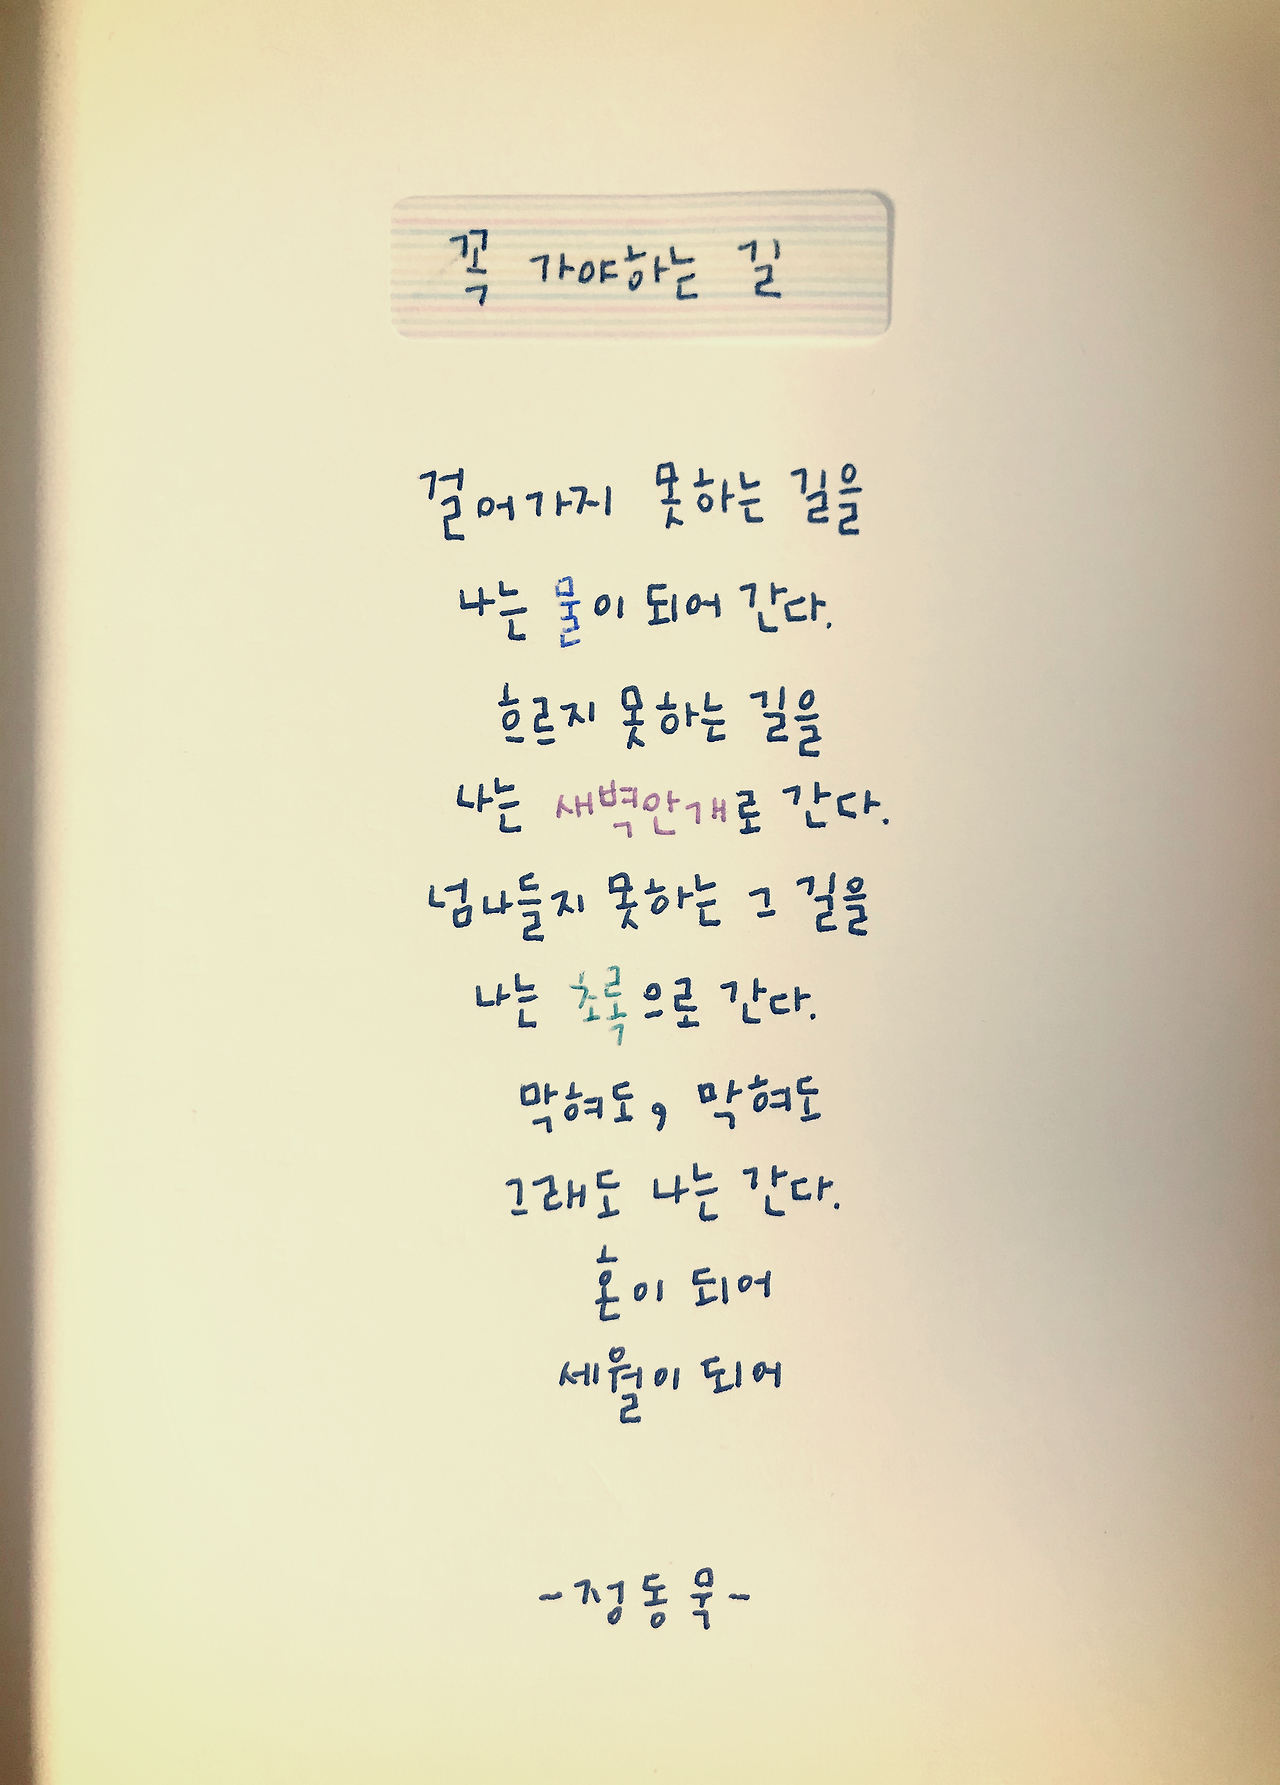 꼭 가야하는 길
걸어가지 못하는 길을
나는 물이 되어 간다.
흐르지 못하는 길을
나는 새벽안개로 간다.
넘나들지 못하는 그 길을
나는 초록으로 간다.
막혀도, 막혀도
그래도 나는 간다.
혼이 되어
세월이 되어
~정동묵~